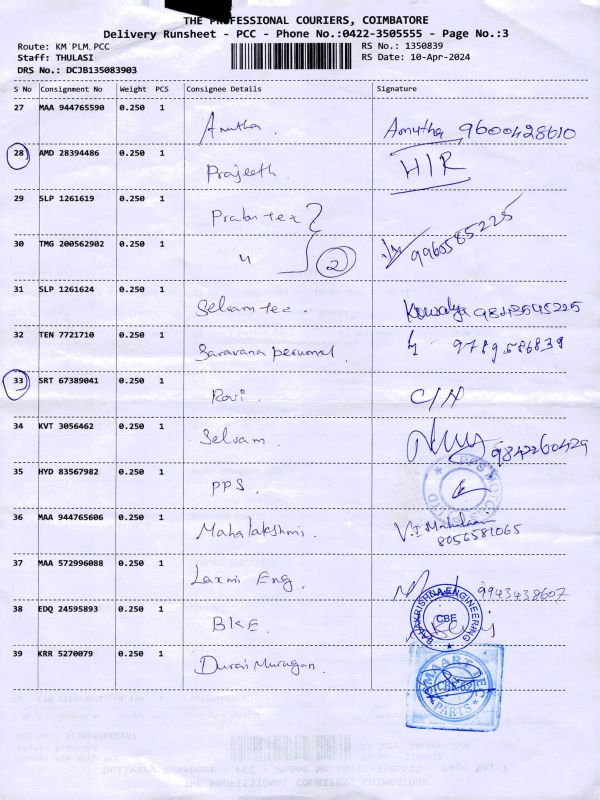 THE PROFESSIONAL COURIERS, COIMBATORE
Delivery Runsheet - PCC - Phone No.:0422-3505555 - Page No.:3
Route: KM PLM PCC RS No.: 1350839
Staff: THULASI RS Date: 10-Apr-2024
DRS No.: DCJB135083903
S No Consignment No Weight PCS Consignee Details Signature
27 MAA 944765590 0.250 1 Amutha. Amutha 9600428610
28 AMD 28394486 0.250 1 Prajeeth. H/R
29 SLP 1261619 0.250 1 Prabu tex
30 TMG 200562902 0.250 1 " 2 9960585225
31 SLP 1261624 0.250 1 Selvam tex. Kowsalya 9843545225
32 TEN 7721710 0.250 1 Saravana perumal. 9789586839
33 SRT 67389041 0.250 1 Ravi. C/N
34 KVT 3056462 0.250 1 Selvam. 9842260429
35 HYD 83567982 0.250 1 PPS.
36 MAA 944765606 0.250 1 Mahalakshmi. V.I
8056581065
37 MAA 572996088 0.250 1 Laxmi Eng. 9943438607
38 EDQ 24595893 0.250 1 BKE. BALAKRISHNA ENGINEERING CBE
39 KRR 5270079 0.250 1 Durai Murugan. PARIS